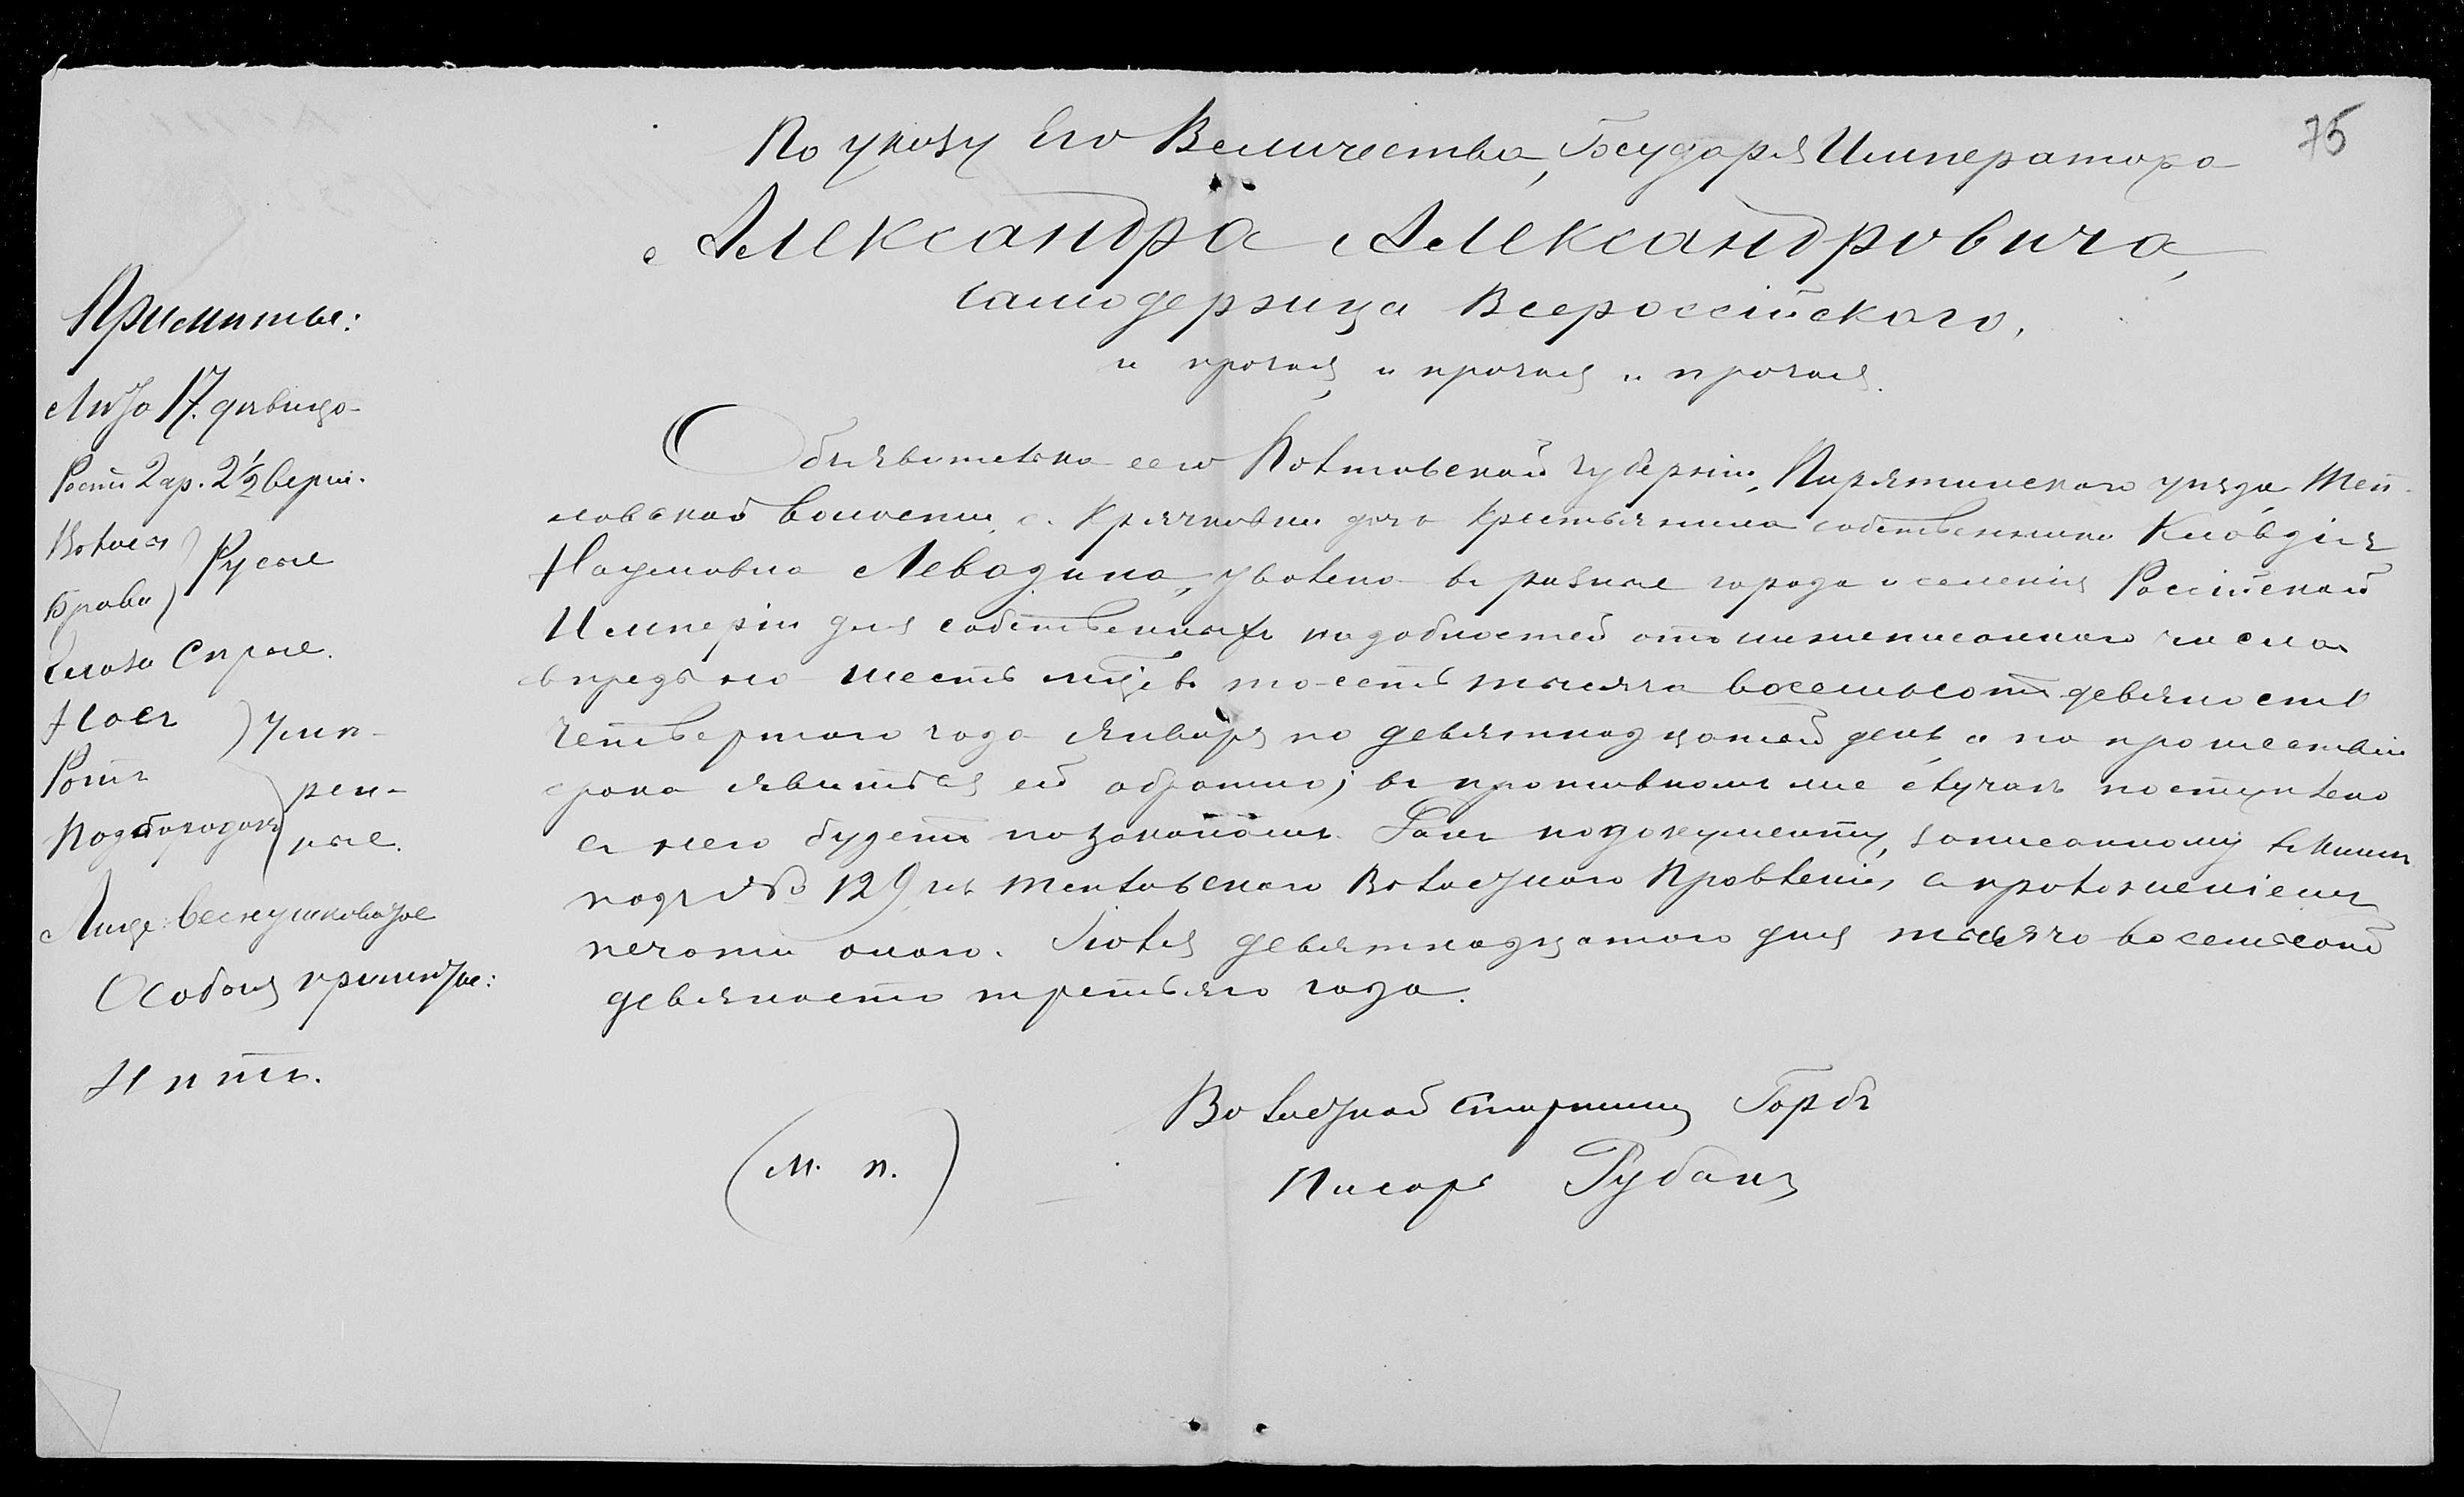 75
По указу Его Величества, Государя Императора
Александра Александровича,
Самодержца Всероссійскаго,
и прочая, и прочая и прочая.
Примѣты:
Лѣта 17. дѣвица
Ростъ 2 ар. 2 1/2 верш.
Волоса
Брови
Русые
Глаза Сѣрые.
Носъ
Ротъ
Подбородокъ
Умѣ-
рен-
ные.
Лице: веснушковатое
Особыя примѣты:
Нѣтъ.
Объявительница сего Полтавской губерніи, Пирятинскаго уѣзда, Теп-
ловской волости, с. Крячковки дочь крестьянина собственника Клавдія
Наумовна Левадина, уволена въ разные города и селенія Россійской
Имперіи для собственныхъ надобностей отъ нижеписаннаго числа
впредь на шесть мѣсяцевъ то есть тысяча восемьсотъ девяносто
четвертаго года Января по девятнадцатый день, и по прошествіи
срока явиться ей обратно; въ противномъ же случаѣ поступлено
съ нею будетъ по законамъ. Данъ по документу, записанному въ книгѣ
подъ № 129 изъ Тепловскаго Волостнаго Правленія, съ приложеніемъ
печати онаго. Іюля девятнадцатаго дня тысяча восемьсотъ
девяносто третьяго года.
Волостной Старшина Горбъ
(М. п.)
Писарь Рубанъ